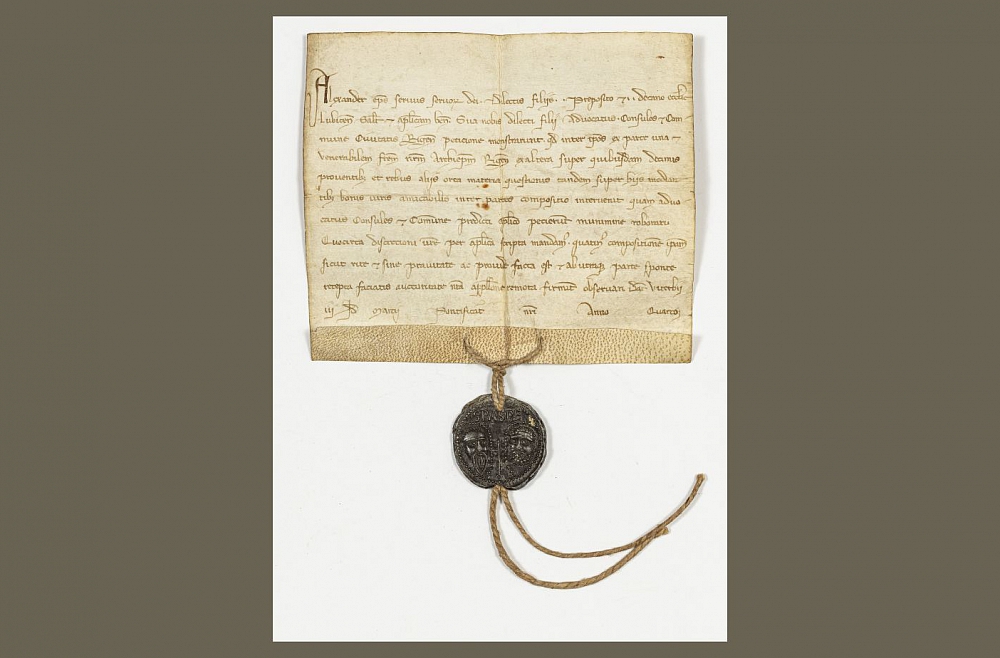 Alexander eps servus servor dei. Dilectis filiis. . Preposito et . . decano eccle
Lubicen Salt et aplicam ben. Sua nobis dilecti filii Advocatus. Consules et Com
mune Civitatis Rigen petitione monstrarunt. qd inter ipos ex parte una et
venerabilem frem nrm Archiepm Rigen ex altera super quibusdam decimis
proventibus et rebus aliis orta materia questionis tandem super hiis median
tibus bonis viris amicabilis inter partes compositio intervenit quam advo
catus Consules et Comune predicti aplico petierunt munimine roborari.
Quocirca discretioni vre per aplica scripta mandam. quatinus compositione ipam
sicut rite et sine pravitate ac provide facta est et ab utraque parte sponte
recepta faciatis auctoritate nra appellone remota firmit observari. Dat Viterbii
iii Id Martii Pontificat nri Anno Quarto.
SPASPE